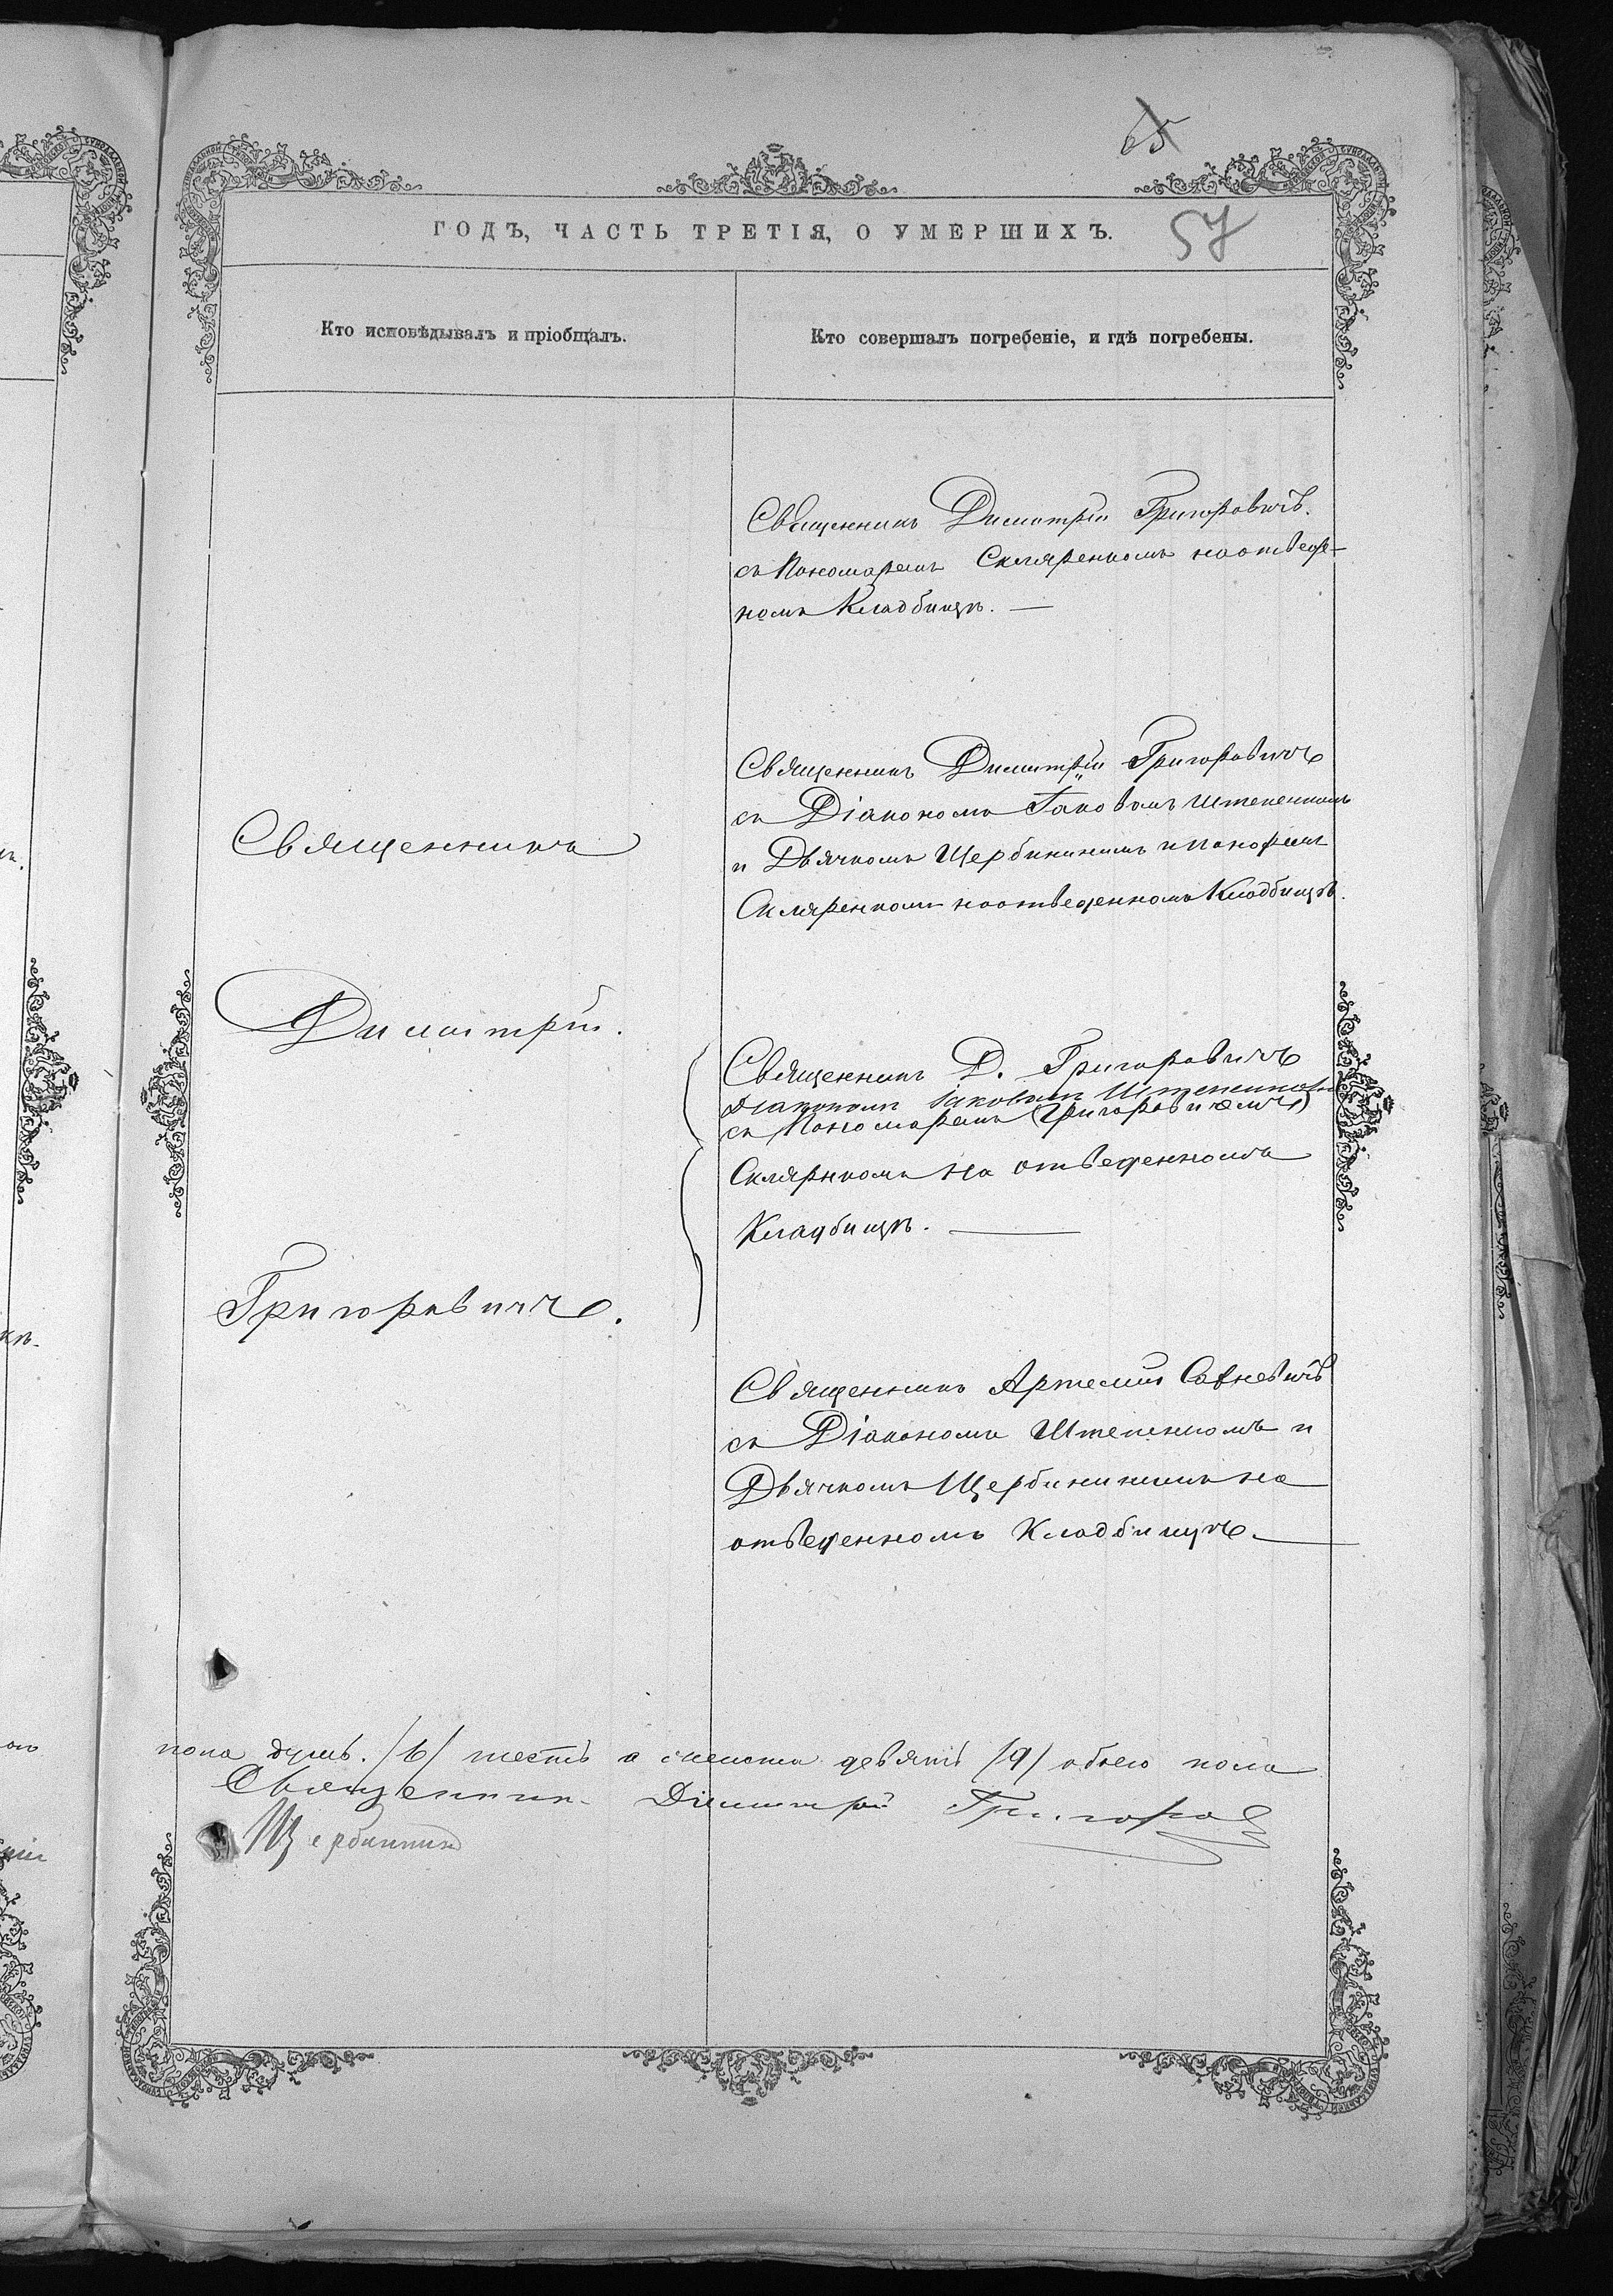 65
ГОДЪ, ЧАСТЬ ТРЕТІЯ, О УМЕРШИХЪ.
57
Кто исповѣдывалъ и пріобщалъ.
Кто совершалъ погребеніе, и гдѣ погребены.
Священникъ
Димитрій.
Григоровичъ.
Священникъ Димитрій Григоровичъ.
съ Пономаремъ Скляренкомъ на отведен-
номъ Кладбищѣ. —
Священникъ Димитрій Григоровичъ
съ Діакономъ Іаковомъ Штепенкомъ
и Дьячкомъ Щербининымъ и понорем
Скляренкомъ на отведенномъ Кладбищѣ.
Священникъ Д. Григоровичъ
Діакономъ Іаковомъ Штепенкомъ
съ Пономаремъ (Григоровичемъ)
Склярнкомъ на отведенномъ
Кладбищѣ. —
Священникъ Артемій
съ Діакономъ Штепенкомъ и
Дьячкомъ Щербининымъ на
отведенномъ Кладбищѣ. —
пола душъ. /6/ шесть а девять /9/ обоего пола
Священник Димитрій Григоров
Щербинин